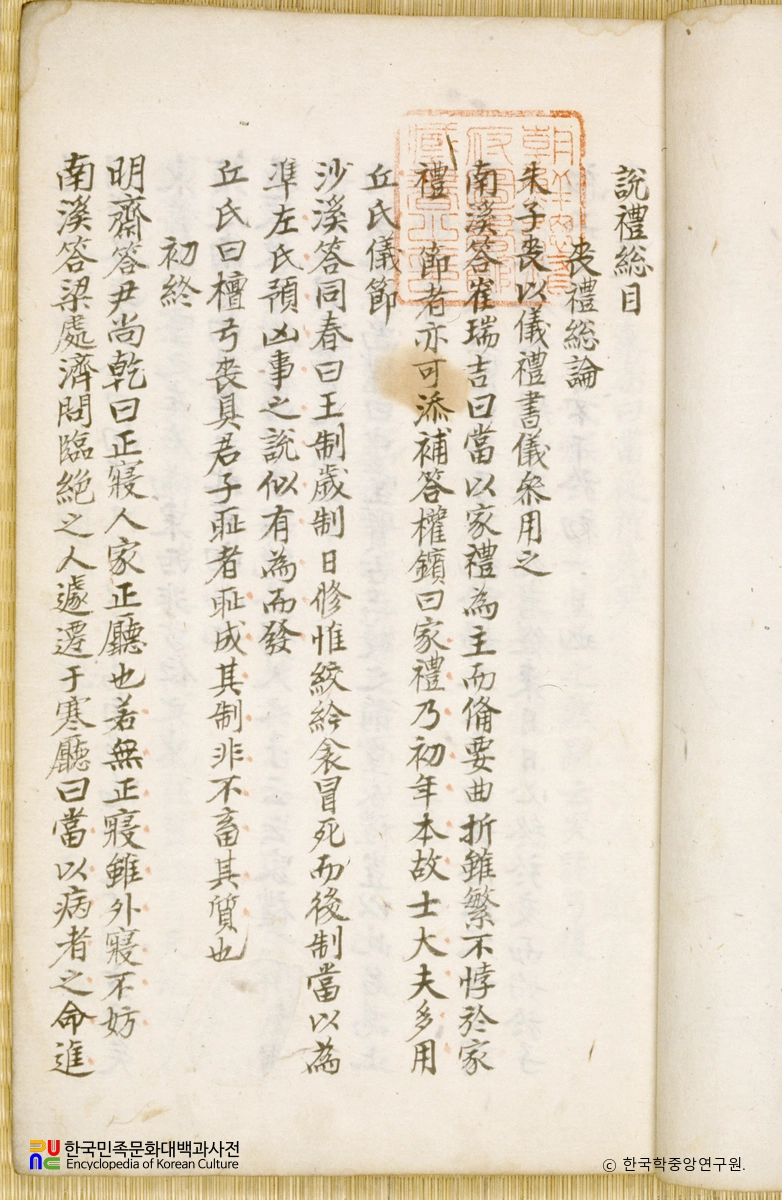 說禮總目
喪禮總論
朱子喪以儀禮書儀參用之
南溪答崔瑞吉曰當以家禮為主而俻要曲折雖繁不悖於家
禮 節者亦可添補答權鑌曰家禮乃初年本故士大夫多用
丘氏儀節
沙溪答同春曰王制歲制日修惟絞紟衾冒死而後制當以為
凖左氏預凶事之說似有為而發
丘氏曰檀弓喪具君子耻者耻成其制非不畜其質也
初終
明齋答尹尚乾曰正寢人家正廳也若無正寢雖外寢不妨
南溪答梁處濟問臨絶之人遽遷于寒廳曰當以病者之命進
한국민족문화대백과사전
Encyclopedia of Korean Culture
ⓒ 한국학중앙연구원.